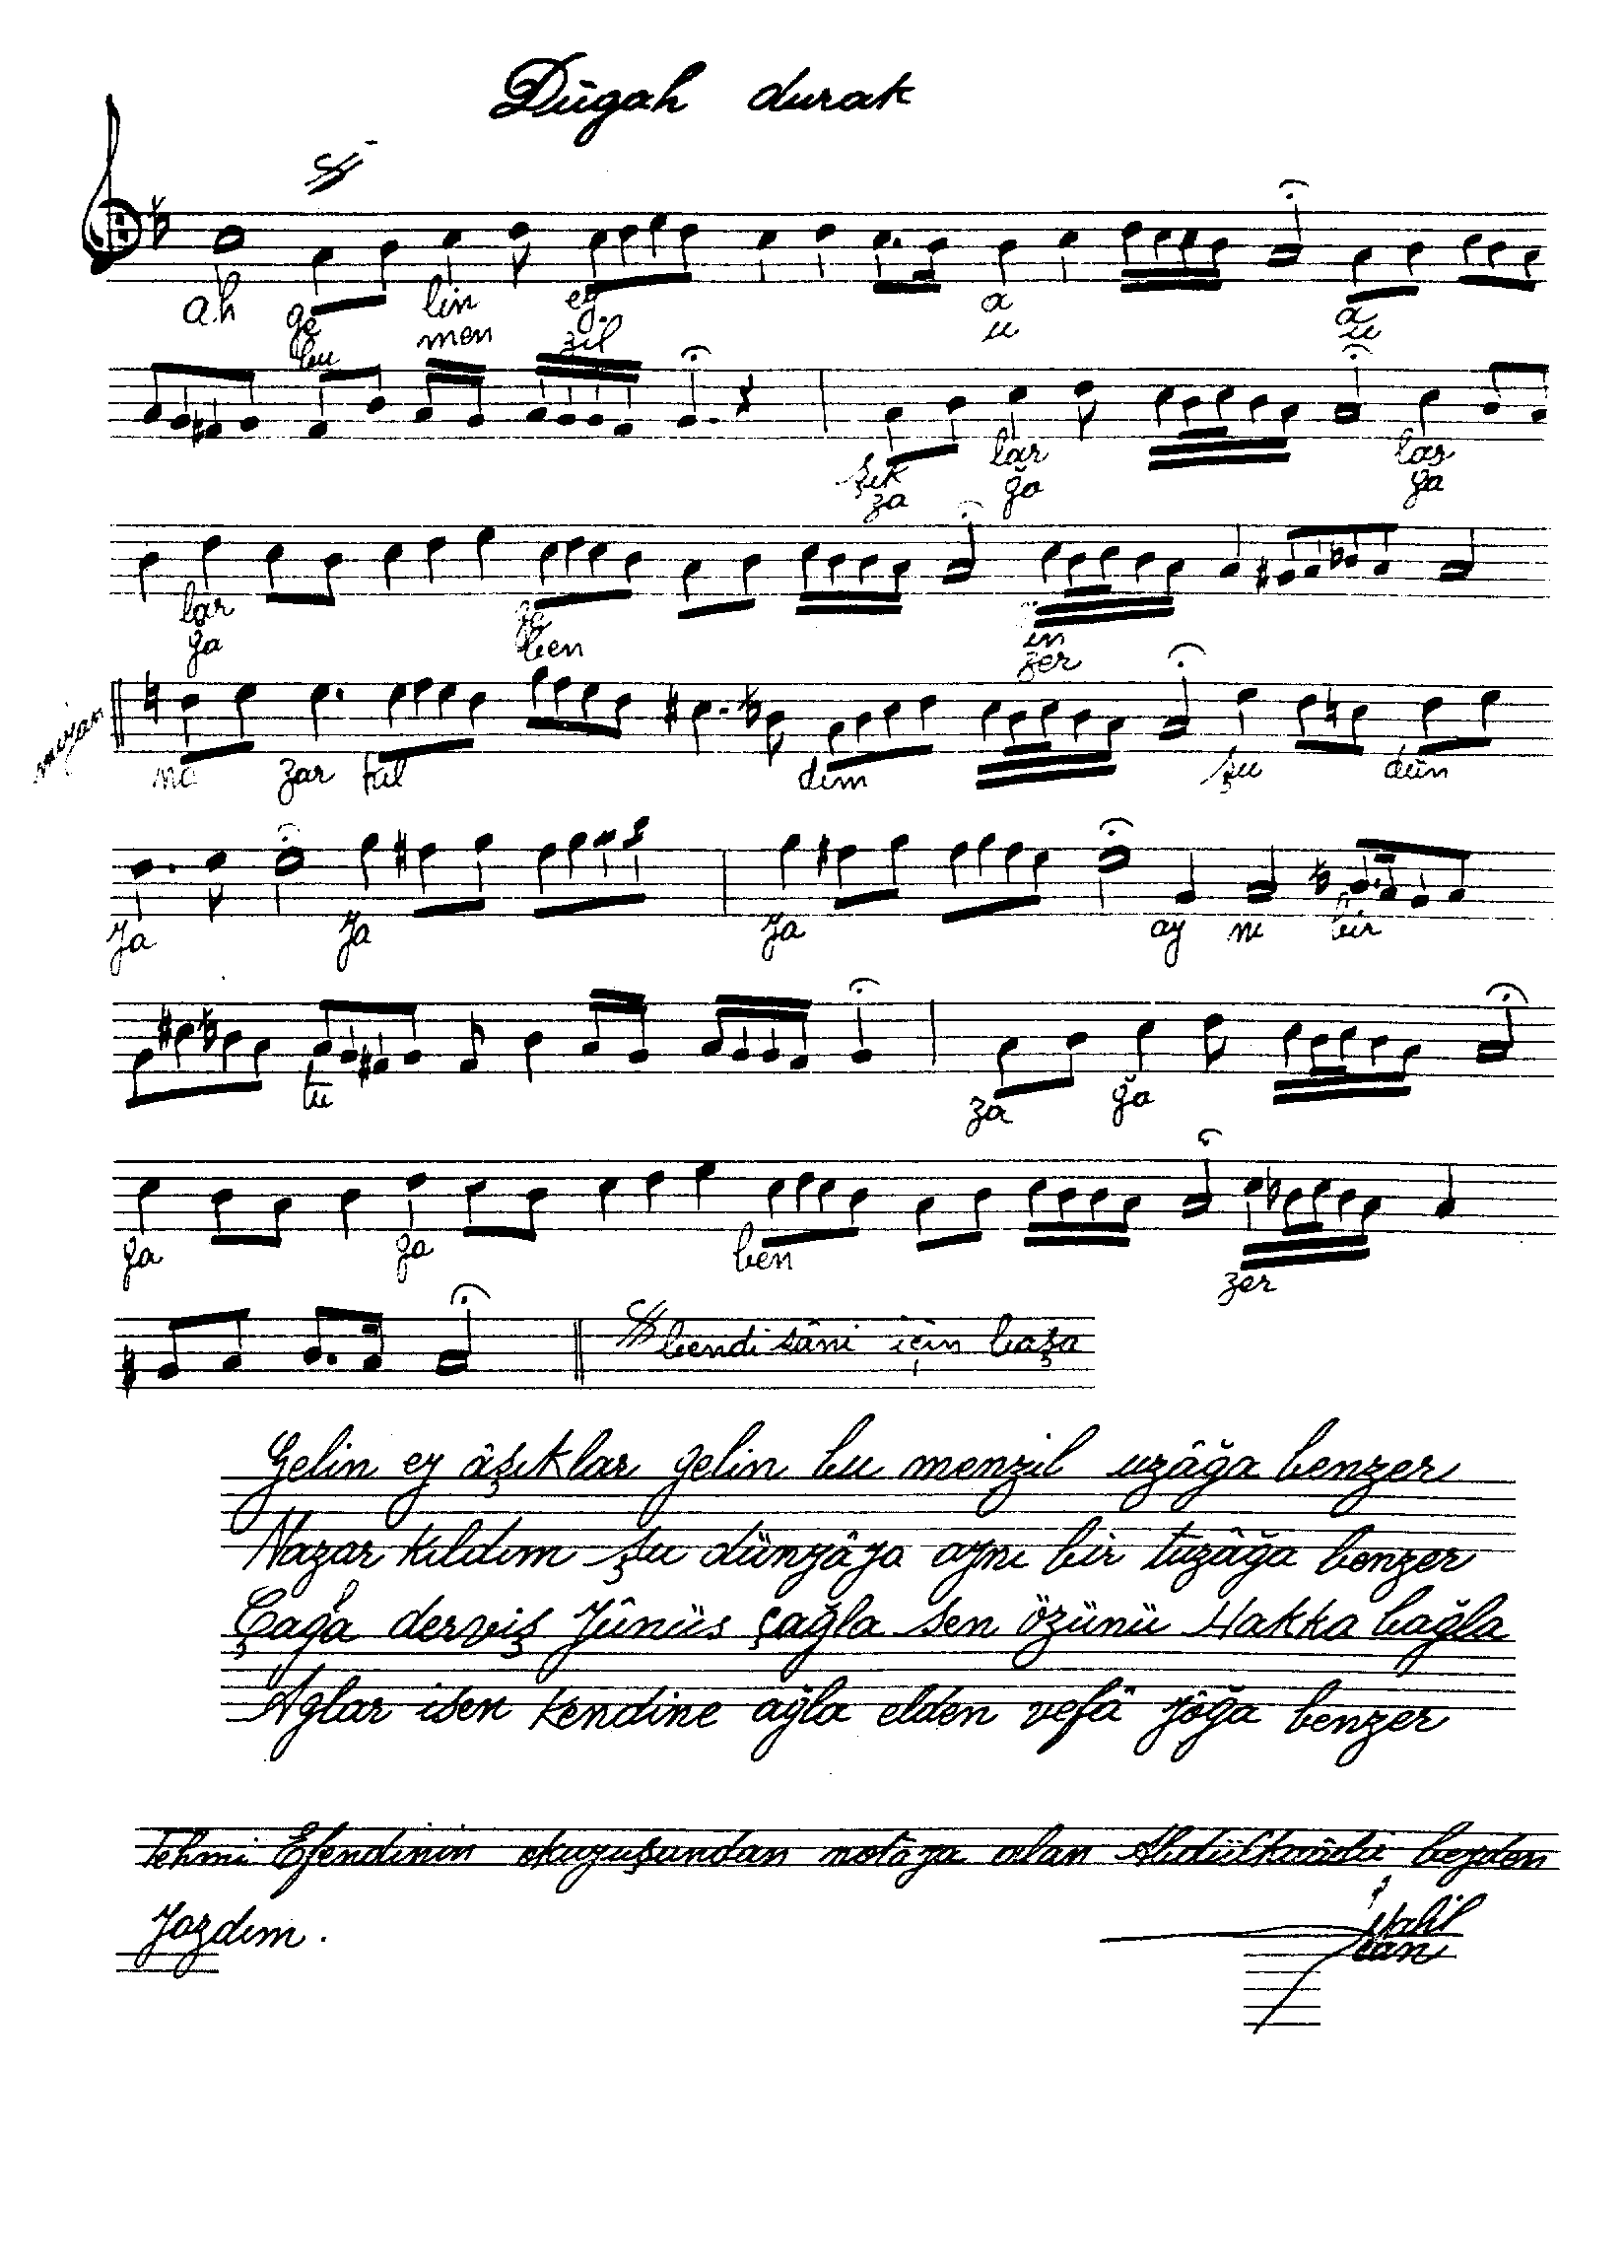 Dügah durak
ah ge lin ey a a
bu men zil u u
şık lar lar
za ğa ğa
lar ge in
ğa ben zer
meyan na zar kıl dım şu dün
ya ya ya ay nı bir
tu za ğa
ğa ğa ben zer
bendi sâni için başa
Gelin ey âşıklar gelin bu menzil uzâğa benzer
Nazar kıldım şu dünyâya aynı bir tuzâğa benzer
Çağa derviş Yûnüs çağla sen özünü Hakka bağla
Ağlar isen kendine ağla elden vefâ yôğa benzer
Fehmi Efendinin okuyuşundan notaya alan Abdülkâdir beyden
yazdım.
Halil
can